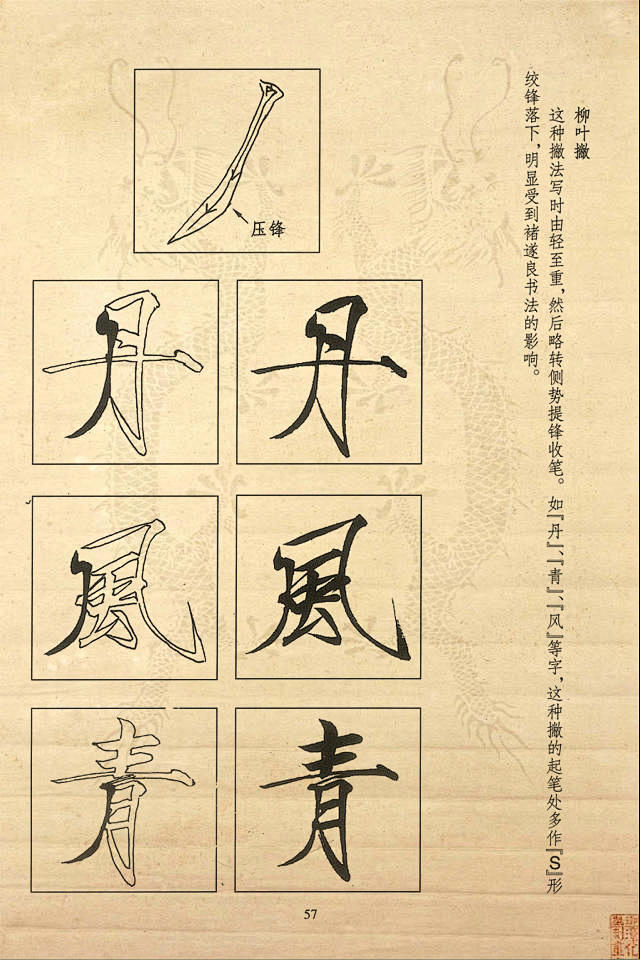 柳叶撇
这种撇法写时由轻至重，然后略转侧势提锋收笔。如『丹』、『青』、『风』等字，这种撇的起笔处多作『S』形
绞锋落下，明显受到褚遂良书法的影响。
压锋
丹
丹
風
風
青
青
57